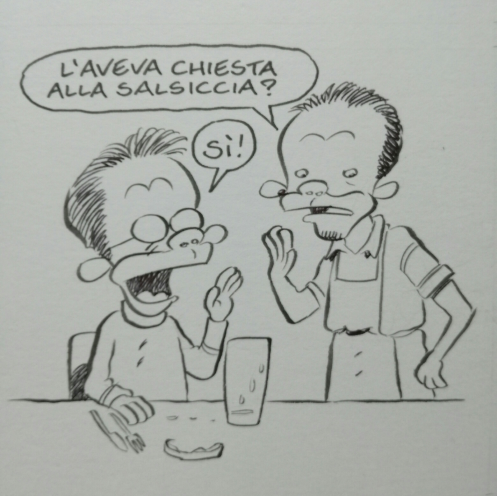 L'AVEVA CHIESTA
ALLA SALSICCIA?
SÌ!